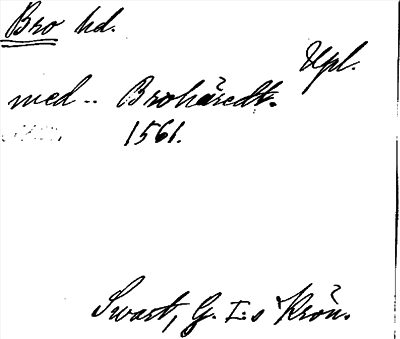 Bro hd.
Upl.
med .. Brohäredt.
1561.
Swart, G. I:s Krön.